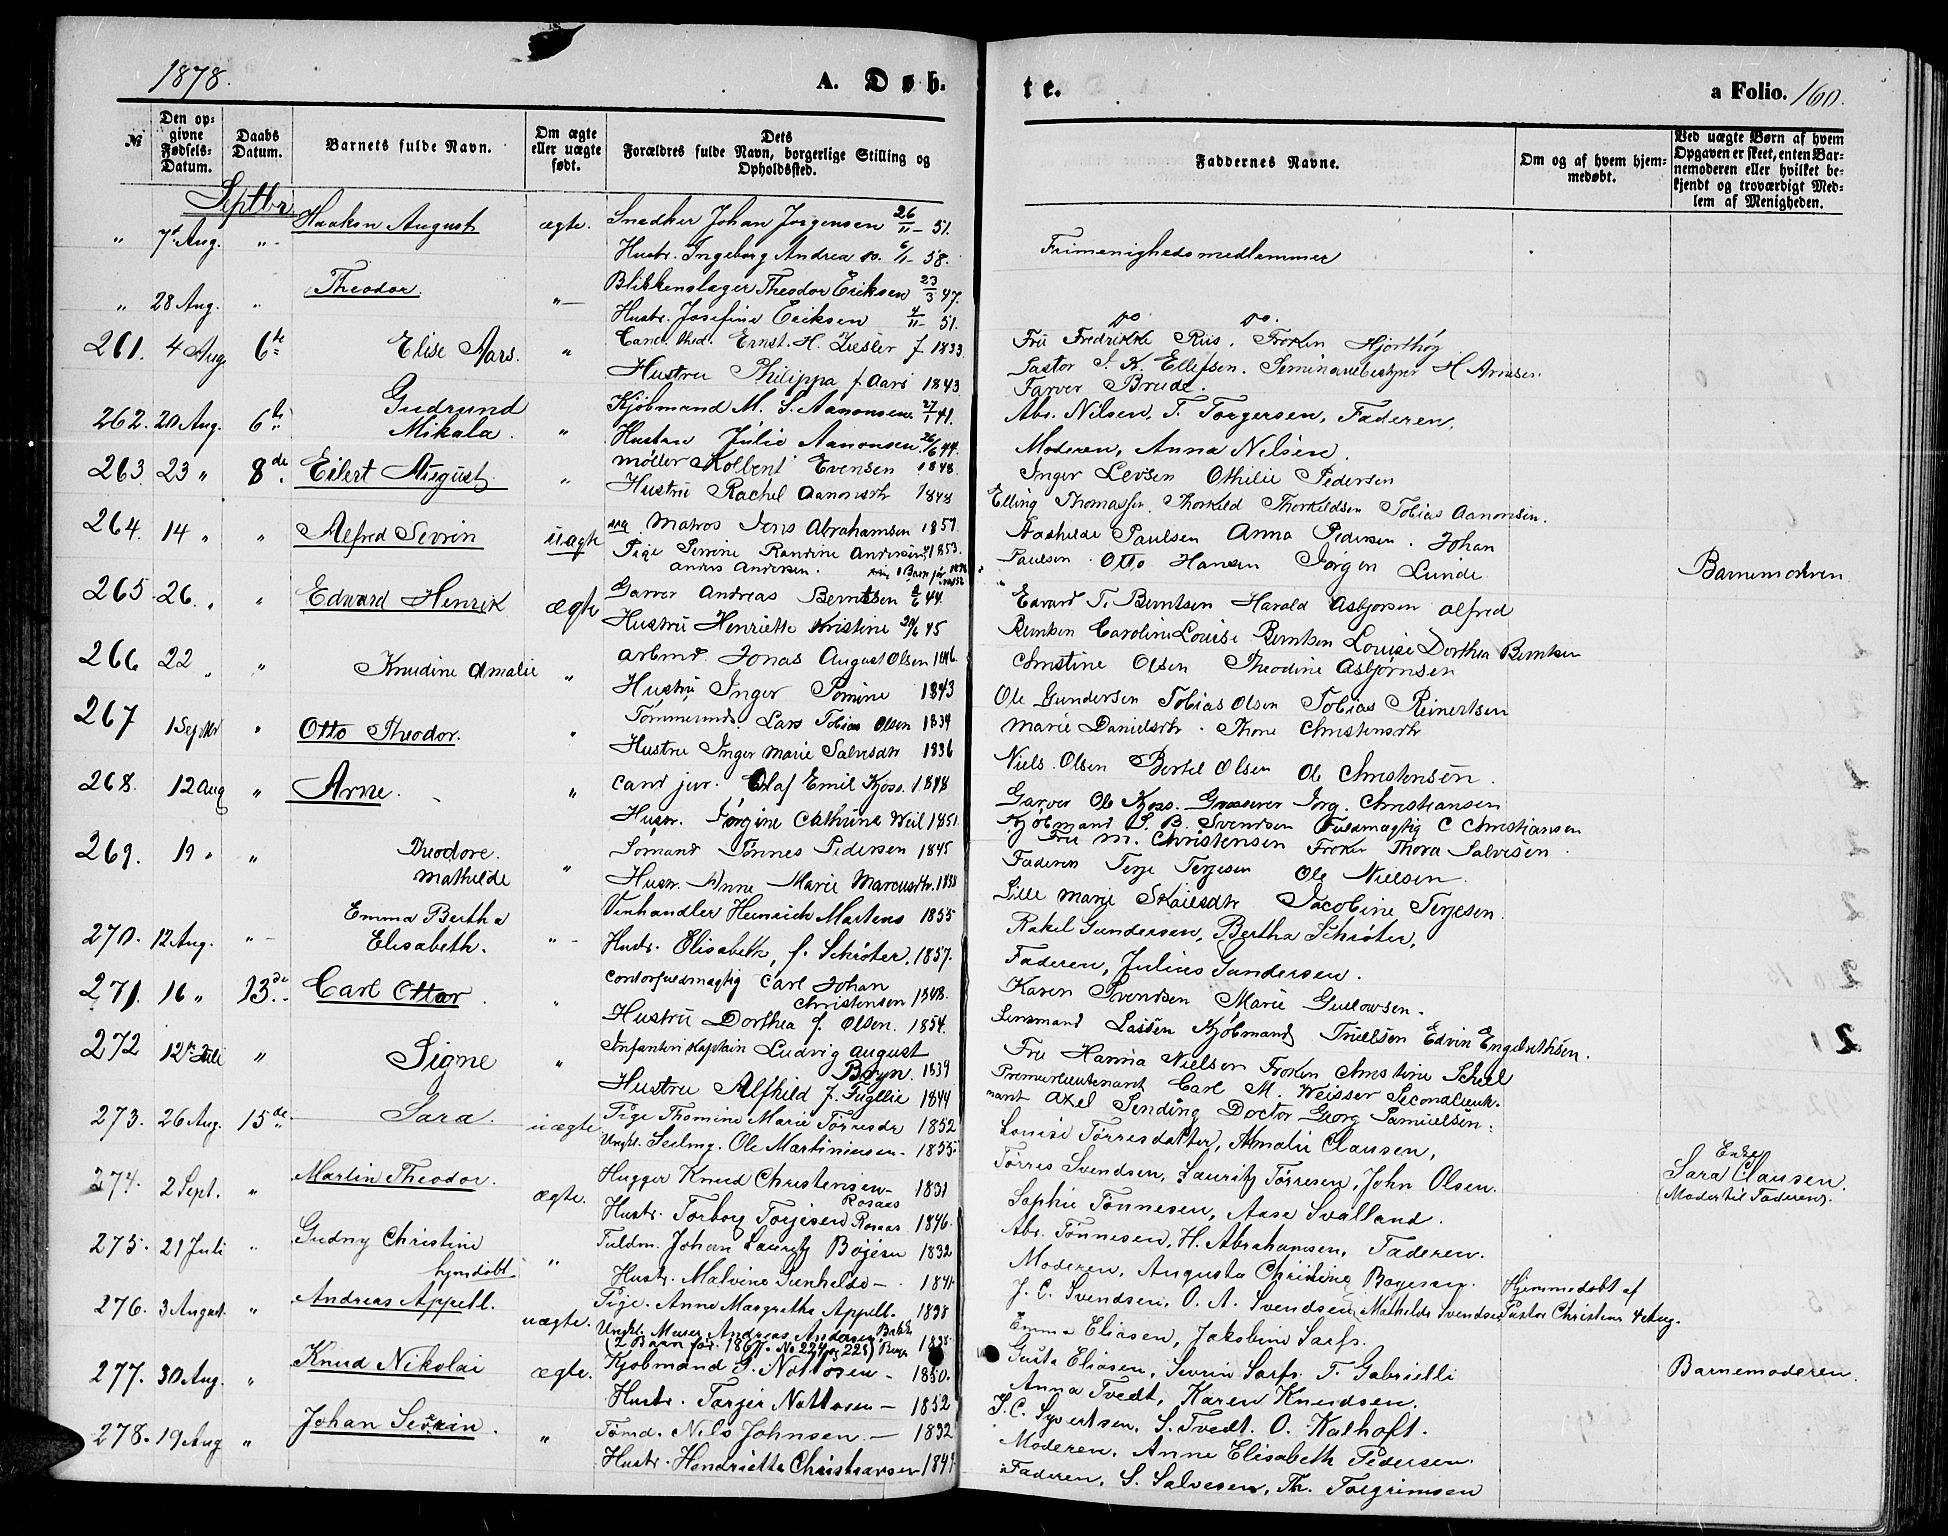 1878.
A. Døb-
te.
a Folio. 160.
№
Den op-
givne
Fødsels-
Datum.
Daabs
Datum.
Barnets fulde Navn.
Om ægte
eller uægte
født.
Dets
Forældres fulde Navn, borgerlige Stilling og
Opholdssted.
Faddernes Navne.
Om og af hvem hjem-
medøbt.
Ved uægte Børn af hvem
Opgaven er skeet, enten Bar-
nemoderen eller hvilket be-
kjendt og troværdigt Med-
lem af Menigheden.
Septbr
" 7de Aug. " Haakon August ægte. Snedker Johan Jørgensen 26/11 - 51.
Hustr. Ingeborg Andrea 6/1 - 58.
Frimenighedsmedlemmer
" 28 Aug. " Theodor. " Blikkenslager Theodor Eriksen 23/3 47.
Hustr. Josefine Eriksen 51.
do. do.
261. 4 Aug 6te Elise Aars. " Cand. theol. Ernst. H. Ziesler f 1833
Hustru Philippa f. Aars 1843
Fru Fredrikke Riis. Frøken Hjorthøy
Pastor J. K. Ellefsen. Seminariebestyrer H Arnesen
Farver Brude.
262. 20 Aug. 6te Gudrund
Mikala. " Kjøbmand M. S. Aanonsen 27/1 41.
Hustru Julie Aanonsen 26/6 44.
Abr. Nilsen, T. Torgersen, Faderen,
Moderen, Anna Nilsen.
263 23 " 8de Eilert August " Møller Kolbent Evensen 1848.
Hustru Rachel Aanonsdtr 1848
Inger Levsen Othilie Pedersen
Elling Thomassen. Thorkild Thorkildsen Tobias Aanonsen.
264. 14 " " Alfred Sevrin uægte Matros Jens Abrahamsen 1851
Pige Serine Randine Andersen 1853.
Anders Andersen.
Mathilde Paulsen Anna Pedersen. Johan
Paulsen. Otto Hansen Jørgen Lunde
Barnemoderen
265. 26. " " Edward Henrik ægte Garver Andreas Berntsen 44.
Hustru Henriette Kristine 45
Edvard T. Berntsen Harald Asbjørsen Alfred
Berntsen Caroline Louise Berntsen Louise Dorthea Berntsen
266 22 " " Knudine Amalie " Arbmd. Jonas August Olsen 1846
Hustru Inger Tomine 1843
Christine Olsen Theodine Asbjørnsen
Ole Gundersen Tobias Olsen Tobias Reinertsen
267 1 Septbr " Otto Theodor. " Tømmermd. Lars Tobias Olsen 1834
Hustru Inger Marie Salvesdtr 1836
Marie Danielsdtr. Thone Christensdtr
Niels Olsen Bertel Olsen Ole Christensen.
268. 12 Aug " Arne. " Cand jur. Olaf Emil Kjøss. 1848
Hustr. Jørgine Cathrine Weil 1851
Garver Ole Kjøss. Grosserer Jørg. Christiansen
Kjøbmand S. B. Svendsen Fuldmægtig C Christiansen
Fru M. Christensen Frøken Thora Salvesen.
269. 19 " " Theodore.
Mathilde " Sømand Tønnes Pedersen 1845
Hustr. Anne Marie Marcusdtr. 1838
Faderen Terje Terjesen Ole Nielsen.
Lille Marie Jacobine Terjesen.
270. 12 Aug. " Emma Bertha
Elisabeth. " Vinhandler Heinrich Martens 1855
Hustr. Elisabeth, f. Schrøter. 1857.
Rakel Gundersen, Bertha Schrøter,
Faderen, Julius Gundersen.
271. 16 " 13de Carl Ottar. " Contorfuldmægtig Carl Johan
Christensen 1848.
Hustru Dorthea f. Olsen. 1854.
Karen Svendsen Marie Gustowsen.
Lensmand Lassen Kjøbmand Truelsen Edvin Engebrethsen.
272 12te Juli " Signe " Infanterikaptain Ludvig August
Bryn. 1839
Hustru Alfhild f. Fuglie 1844
Fru Hanna Nielsen Frøken Christine Scheel
Premierlieutenant Carl M. Weisser Secondlieut-
nant Axel Sending Doctor Georg Samuelsen.
273. 26 Aug. 15de Sara. uægte Pige Thomine Marie Tørresdr 1852
Ungkl. Seilmg. Ole Martiniussen. 1855
Louise Tørresdatter, Amalie Clausen,
Tørres Svendsen, Lauritz Tørresen, John Olsen.
Enke
Sara Clausen.
(Moder til Faderen).
274. 2 Sept. " Martin Theodor. ægte. Hugger Knud Christensen
Rosaas 1831
Hustr. Torborg Torjesen Rosaas 1846.
Sophie Tønnesen, Aase Svalland.
Abr. Tønnesen, H. Abrahamsen, Faderen.
275. 21 Juli " Gudny Christine
hjemdøbt " Fuldm. Johan Lauritz Bøjesen 1832
Hustr. Malvine Gunhilde - 1841
Moderen, Augusta Christine Bøyesen.
J. C. Svendsen, O. A. Svendsen, Mathilde Svendsen
Hjemmedøbt af
Pastor Christens 4 Aug.
276. 3 August. " Andreas Appell. uægte. Pige. Anne Margrethe Appell. 1838
Ungkl. Murer Andreas Andersen 1835
(2 Barn før. 1867. No 224 og 225)
Emma Eliasen, Jakobine Sarfs.
Gusta Eliasen, Sevrin Sarfs. T. Gabrielli
Barnemoderen.
277. 30 Aug. " Knud Nikolai ægte. Kjøbmand G. Nottosen - 1850.
Hustr. Tarjer Nottosen - 1852
Anna Tvedt, Karen Knudsen.
S. C. Syvertsen, S. Tvedt. O. Kalhoft.
278. 19 Aug " Johan Sevrin. " Tømd. Nils Johnsen. - 1832
Hustr. Hendriette Christiansen 1841
Moderen, Anne Elisabeth Pedersen.
Faderen, S. Salvesen, Th. Torgrimsen